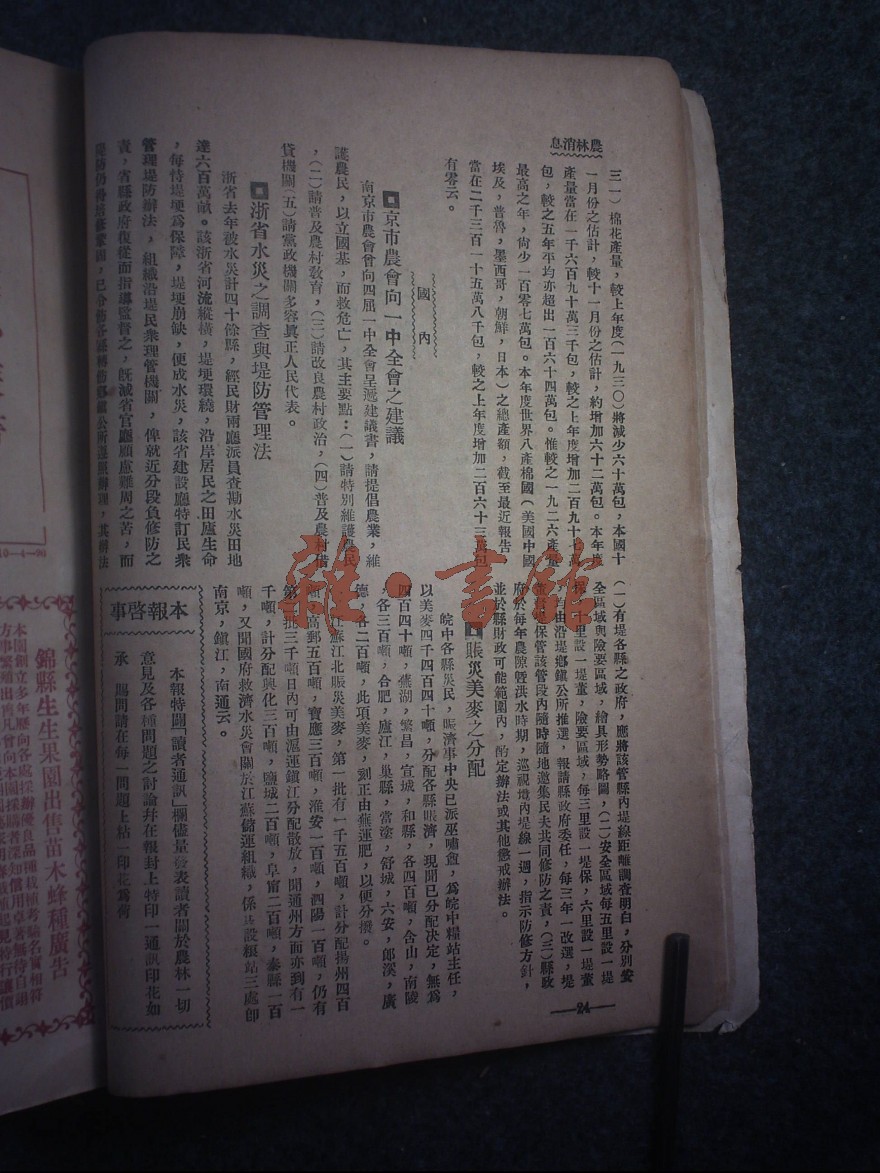 農林消息
三一）棉花產量，較上年度（一九三〇）將減少六十萬包，本國十
一月份之估計，較十一月份之估計，約增加六十二萬包。本年度
產量當在一千六百九十萬三千包，較之上年度增加二百九十八萬
包，較之五年平均亦超出一百六十四萬包。惟較之一九二六產量
最高之年，尙少一百零七萬包。本年度世界八產棉國（美國中國
埃及，普魯，墨西哥，朝鮮，日本）之總產額，截至最近報告
當在二千三百一十五萬八千包，較之上年度增加二百六十三萬包
有零云。
國內
京市農會向一中全會之建議
南京市農會曾向四屆一中全會呈遞建議書，請提倡農業，維
護農民，以立國基，而救危亡，其主要點：（一）請特別維護農民
，（二）請普及農村敎育，（三）請改良農村政治，（四）普及農村借
貸機關（五）請黨政機關多容眞正人民代表。
浙省水災之調查與堤防管理法
浙省去年被水災計四十餘縣，經民財兩廳派員查勘水災田地
達六百萬畝。該浙省河流縱橫，堤埂環繞，沿岸居民之田廬生命
，每恃堤埂爲保障，堤埂崩缺，便成水災，該省建設廳特訂民衆
管理堤防辦法，組織沿堤民衆理管機關，俾就近分段負修防之
責，省縣政府復從而指導監督之，旣減省官廳顧慮難周之苦，而
堤防仍得
（一）有堤各縣之政府，應將該管縣內堤線距離調查明白，分別安
全區域與險要區域，繪具形勢略圖，（二）安全區域每五里設一堤
十里設一堤董，險要區域，每三里設一堤保，六里設一堤董
由沿堤鄕鎭公所推選，報請縣政府委任，每三年一改選，堤
保管該管段內隨時隨地邀集民夫共同修防之責，（三）縣政
府於每年農隙曁洪水時期，巡視境內堤線一週，指示防修方針，
並於縣財政可能範圍內，酌定辦法或其他懲戒辦法。
賑災美麥之分配
皖中各縣災民，賑濟事中央已派巫嘯壼，爲皖中糧站主任，
以美麥四千四百四十噸，分配各縣賑濟，現聞已分配決定，無爲
四百四十噸，蕪湖，繁昌，宣城，和縣，各四百噸，含山，南陵
，各三百噸，合肥，廬江，巢縣，當塗，舒城，六安，郎溪，廣
德，各二百噸，此項美麥，刻正由蕪運肥，以便分撥。
江蘇江北賑災美麥，第一批有一千五百噸，計分配揚州四百
噸，高郵五百噸，寶應三百噸，淮安一百噸，泗陽一百噸，仍有
第二批三千噸日內可由滬運鎭江分配散放，聞通州方面亦到有一
千噸，計分配興化三百噸，鹽城二百噸，阜甯二百噸，泰縣一百
噸，又聞國府救濟水災會關於江蘇儲運組織，係具設糧站三處卽
南京，鎭江，南通云。
本報啓事
本報特闢「讀者通訊」欄儘量發表讀者關於農林一切
意見及各種問題之討論幷在報封上特印一通訊印花如
承　賜問請在每一問題上粘一印花爲荷
24
錦縣生生果園出售苗木蜂種廣告